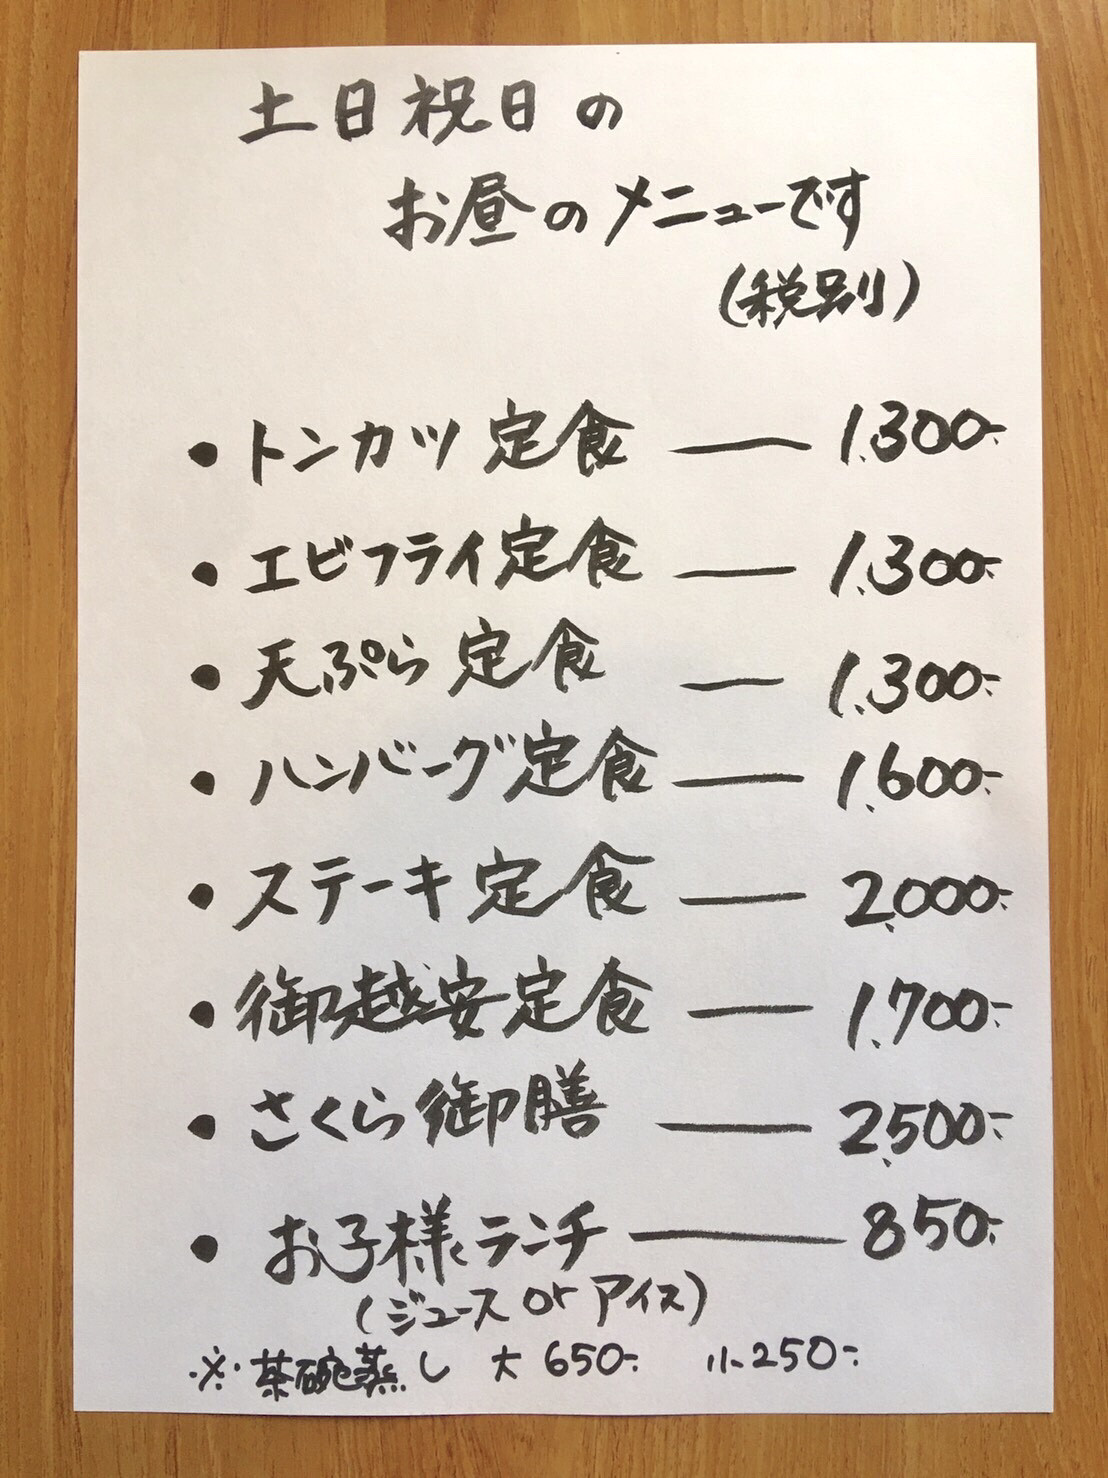 土日祝日の
お昼のメニューです
(税別)
・トンカツ定食 — 1,300-
・エビフライ定食 — 1,300-
・天ぷら定食 — 1,300-
・ハンバーグ定食 — 1,600-
・ステーキ定食 — 2,000-
・御越安定食 — 1,700-
・さくら御膳 — 2,500-
・お子様ランチ — 850-
(ジュース or アイス)
※茶碗蒸し 大 650- 小 250-